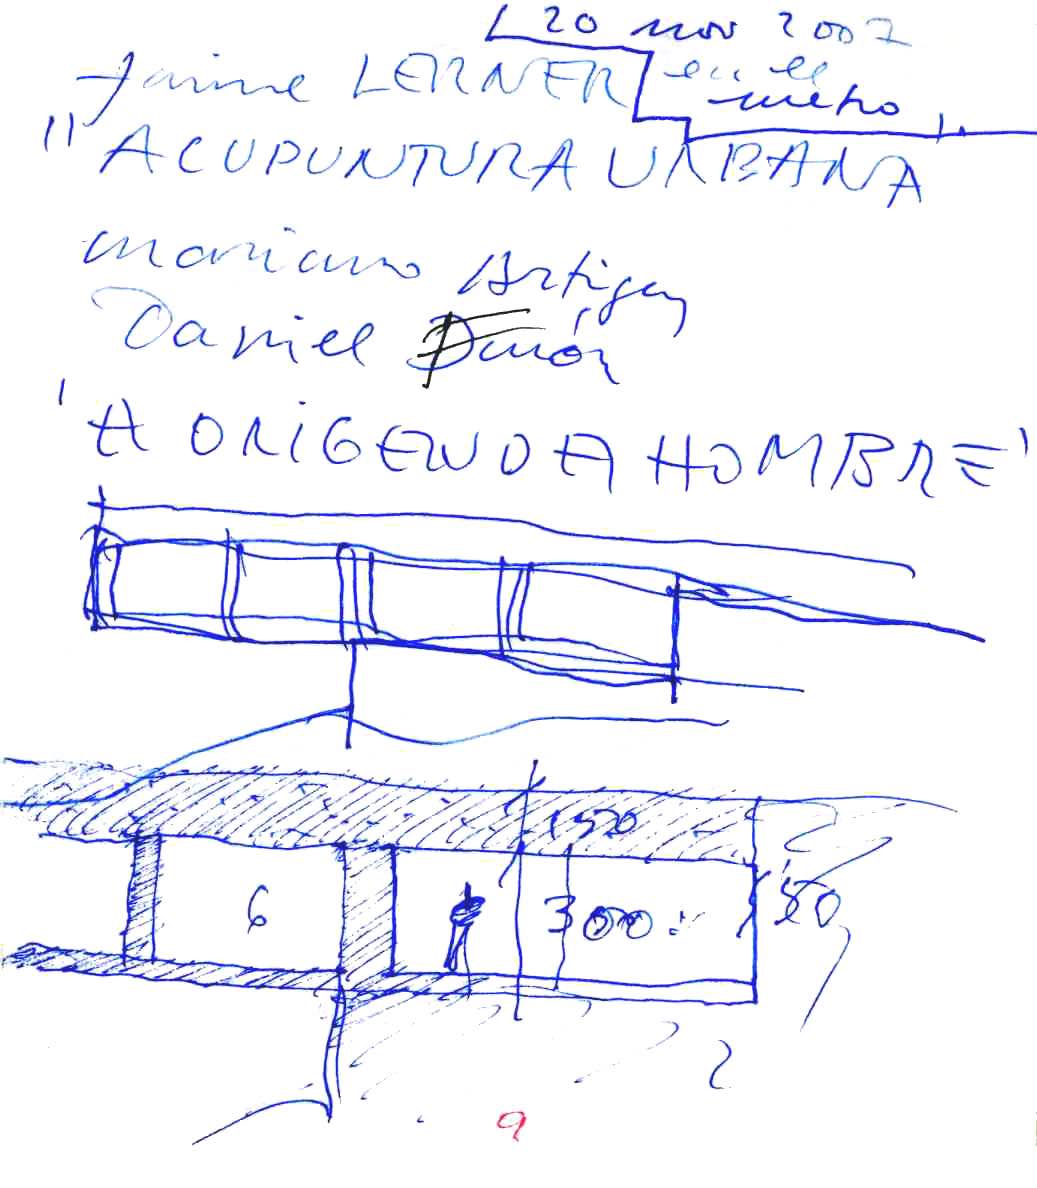 20 nov 2007
Jaime LERNER en el
metro
"ACUPUNTURA URBANA"
Mariano Artigas
Daniel
'A ORIGEN DA HOMBRE'
150
6 300 50
2
9